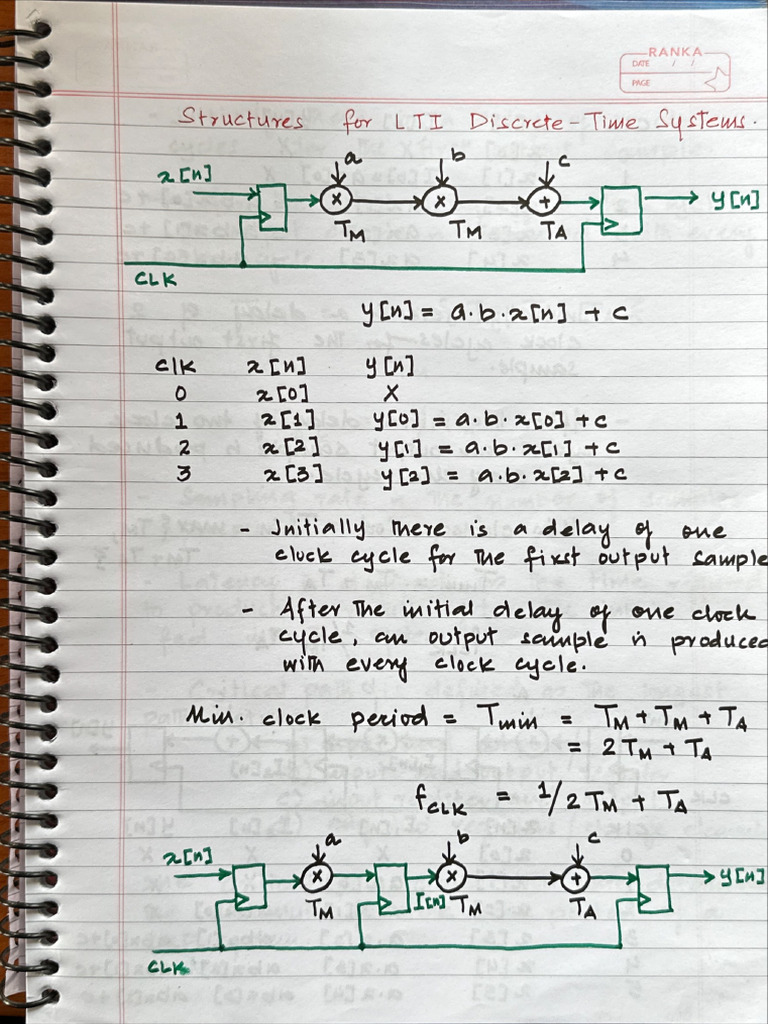 RANKA
DATE / /
PAGE
Structures for LTI Discrete-Time Systems.
a b c
x[n] × × + y[n]
TM TM TA
CLK
y[n] = a.b.x[n] + c
clk x[n] y[n]
0 x[0] X
1 x[1] y[0] = a.b.x[0] + c
2 x[2] y[1] = a.b.x[1] + c
3 x[3] y[2] = a.b.x[2] + c
- Initially there is a delay of one
clock cycle for the first output sample
- After the initial delay of one clock
cycle, an output sample is produced
with every clock cycle.
Min. clock period = Tmin = TM + TM + TA
= 2TM + TA
fCLK = 1/2TM + TA
a b c
x[n] × × + y[n]
TM I[n] TM TA
CLK